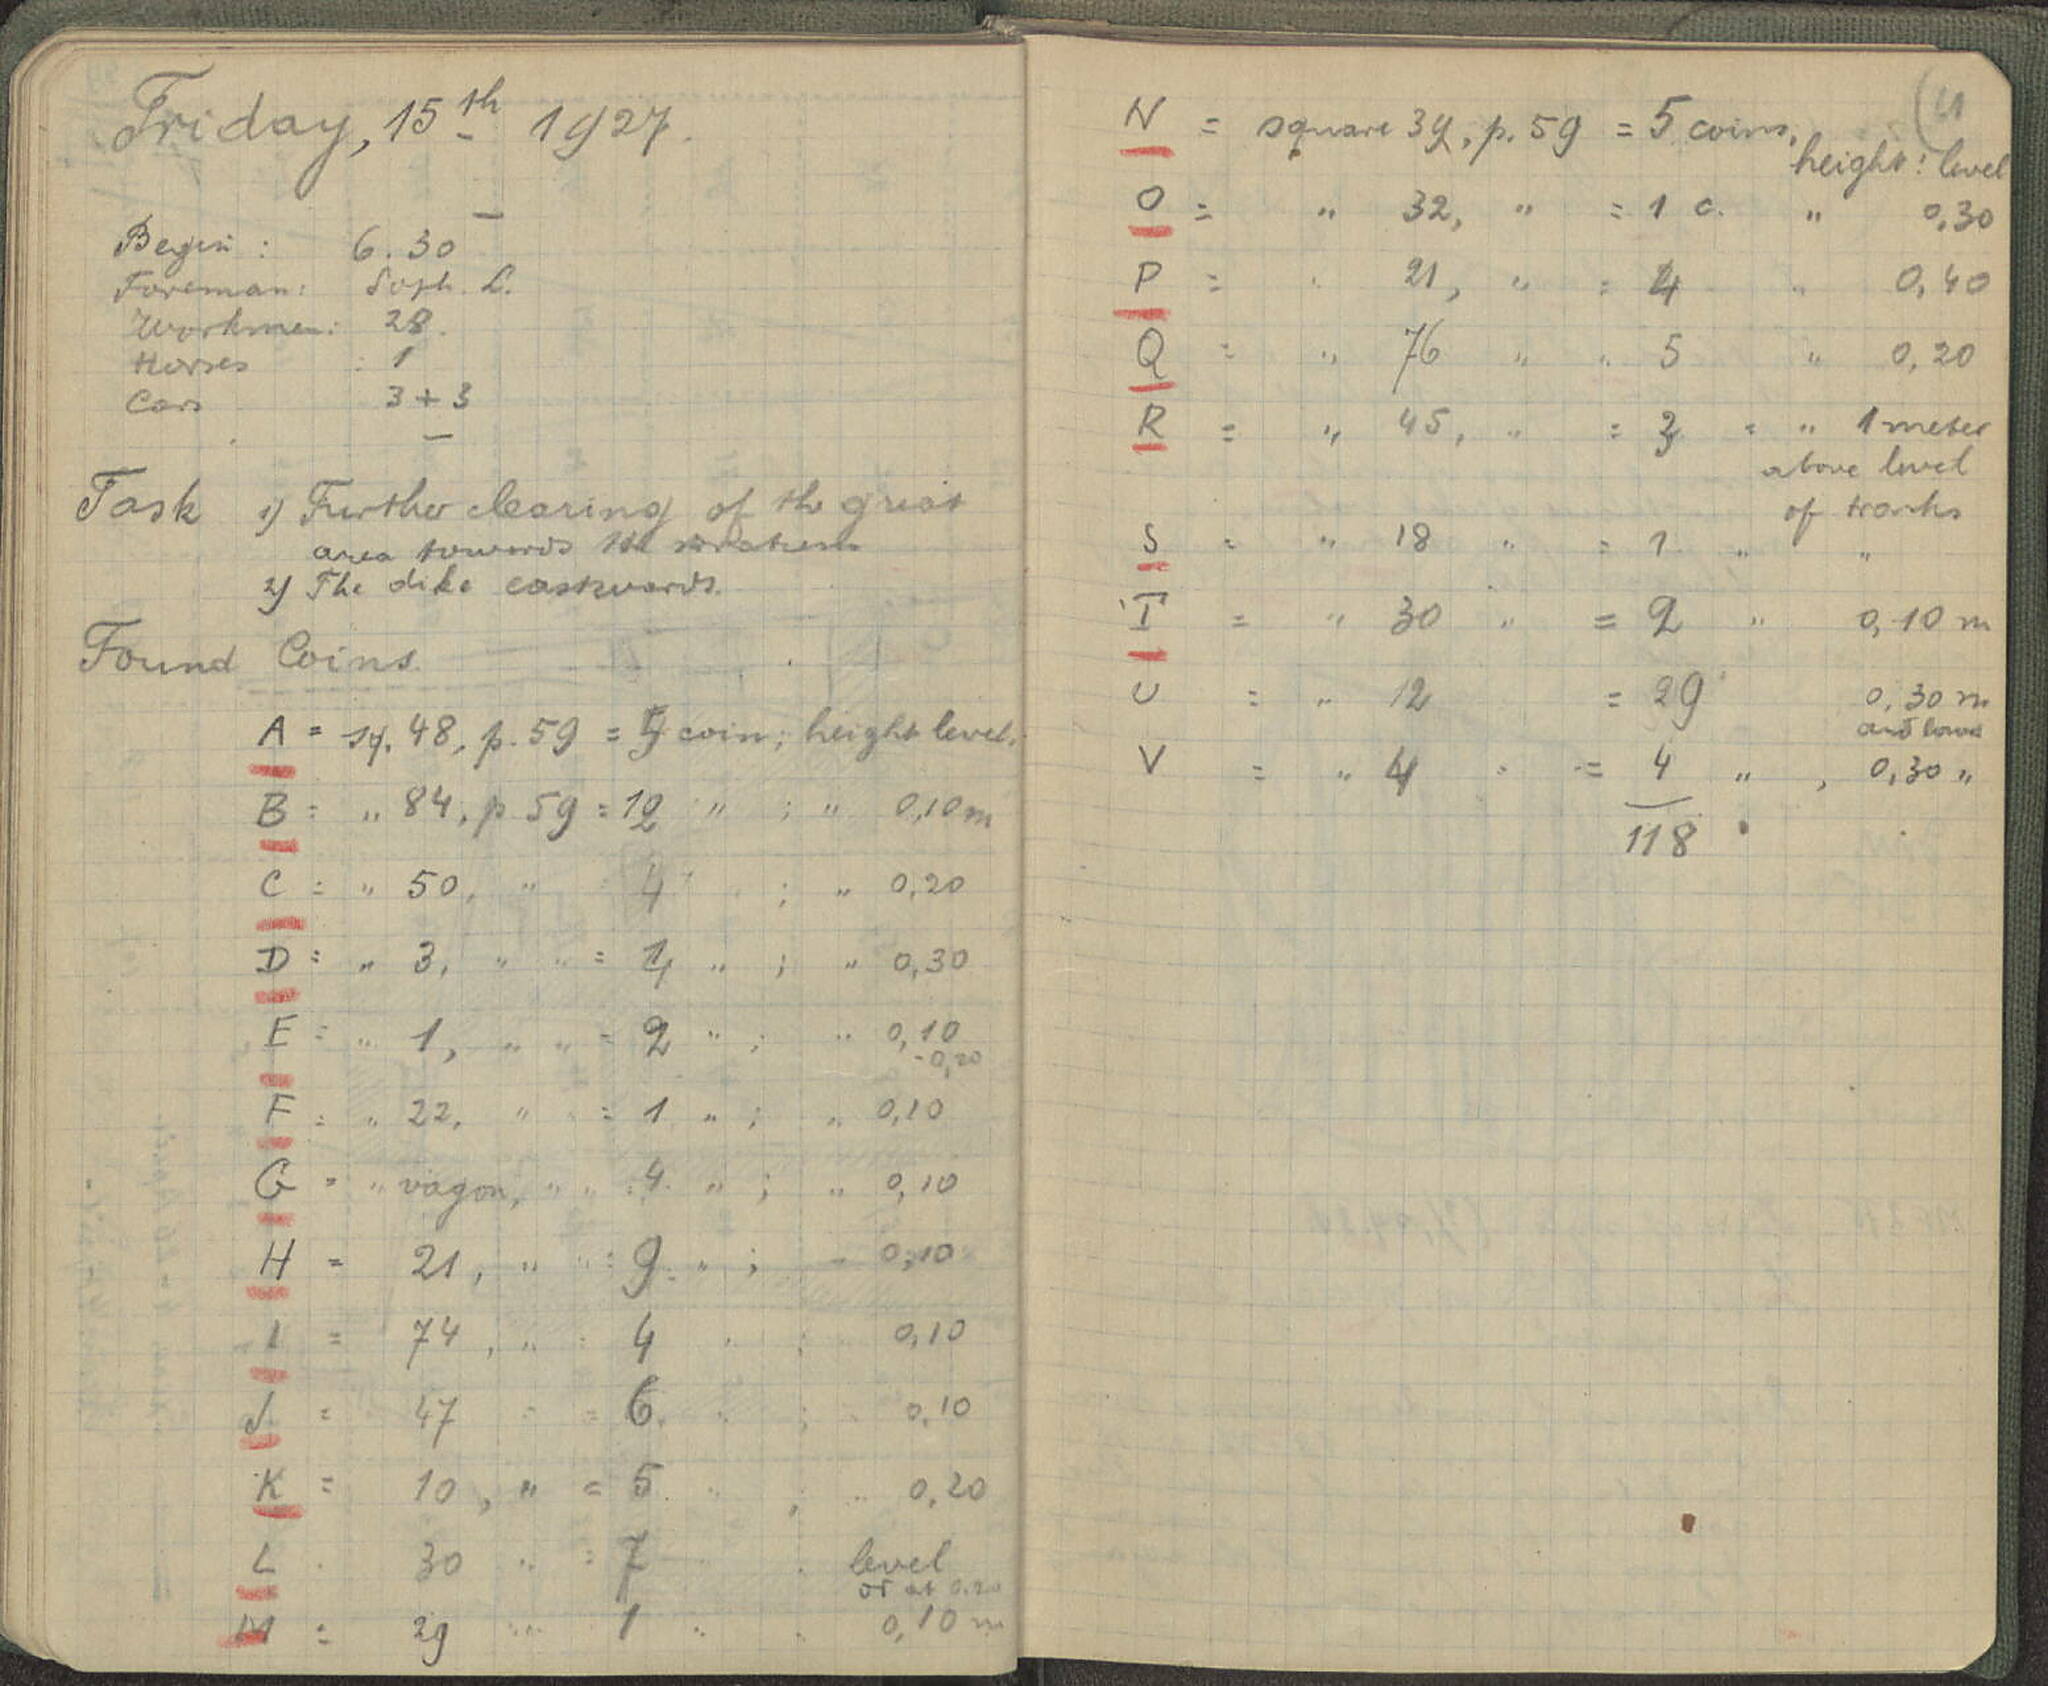 Friday, 15th 1927.
Begin: 6.30
Foreman: Soph. L.
Workmen: 28.
Horses : 1
Cars 3 + 3
Task 1) Further clearing of the great
area towards the
2) The dike eastwards.
Found Coins.
A = sq. 48, p. 59 = coin; height level.
B = " 84, p 59 = 12 " ; " 0,10 m
C = " 50, " = 4 ; " 0,20
D = " 3, " " = " ; " 0,30
E = " 1, " " = 2 " ; " 0,10
- 0,20
F = " 22, " = 1 " ; " 0,10
G = " vagon, " " : 4. " ; " 0,10
H = 21, " " : 9. " ; - 0,10
I = 74, " : 4 " ; 0,10
J = 47 " = 6. " ; " 0,10
K = 10, " = 5. " ; " 0,20
L . 30 " = 7 " . level
or at 0.20
M = 29 " 1 " . 0,10 m
N = square 39, p. 59 = 5 coins,
height: level
O = " 32, " = 1 c. " 0,30
P = " 21, " = 4 " 0,40
Q = " 76 " " 5 " 0,20
R = " 45, " = = " 1 meter
above level
of tracks
S = " 18 " = 1 " "
T = " 30 " = 2 " 0,10 m
U = " 12 = 29 0,30 m
and lower
V = " 4 " = 4 " , 0,30 "
118